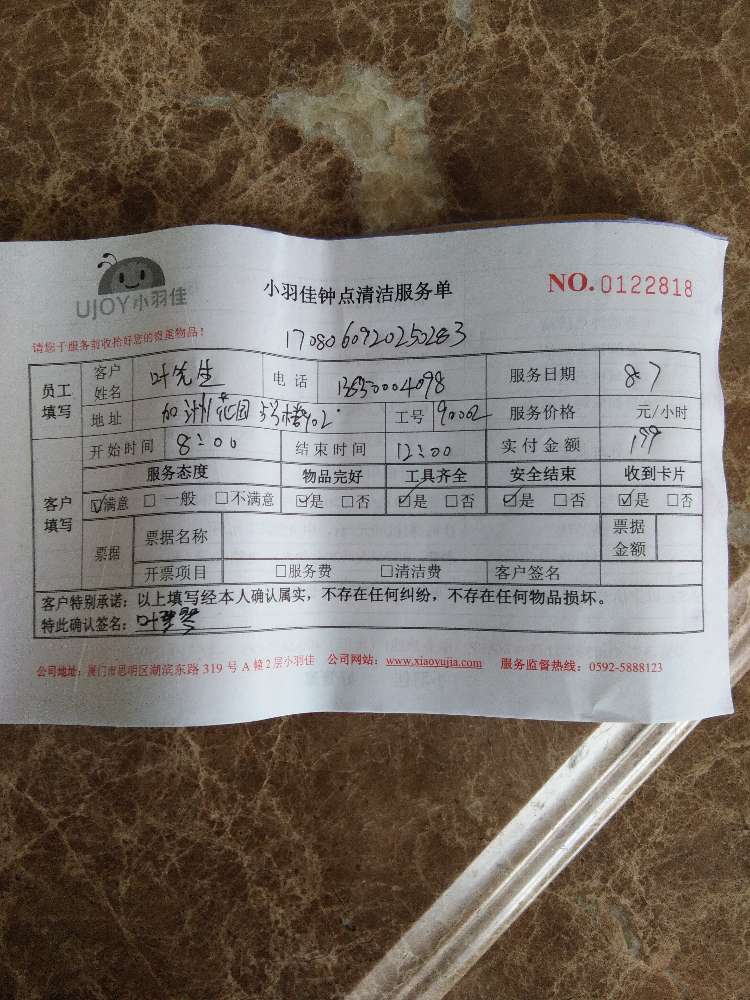 UJOY小羽佳
小羽佳钟点清洁服务单
NO. 0122818
请您于服务前收拾好您的贵重物品!
1708060920250283
员工填写 客户姓名 叶先生 电话 服务日期 8.7
地址 加州花园 5号楼902 工号 90002 服务价格 元/小时
客户填写 开始时间 8:00 结束时间 12:00 实付金额 199
服务态度 物品完好 工具齐全 安全结束 收到卡片
☑满意 □一般 □不满意 ☑是 □否 ☑是 □否 ☑是 □否 ☑是 □否
票据 票据名称 票据金额
开票项目 □服务费 □清洁费 客户签名
客户特别承诺:以上填写经本人确认属实,不存在任何纠纷,不存在任何物品损坏。
特此确认签名:
公司地址:厦门市思明区湖滨东路 319 号 A 幢 2 层小羽佳 公司网站:www.xiaoyujia.com 服务监督热线:0592-5888123